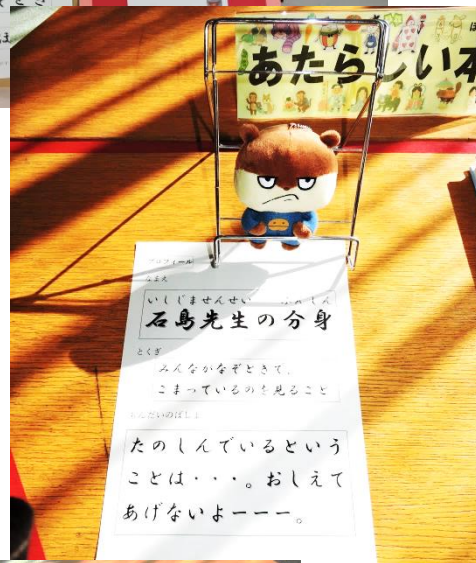 あたらしい本
プロフィール
なまえ
いしじませんせい ぶんしん
石島先生の分身
とくぎ
みんながなぞときで、
こまっているのを見ること
もんだいのばしょ
たのしんでいるという
ことは・・・。おしえて
あげないよーーー。